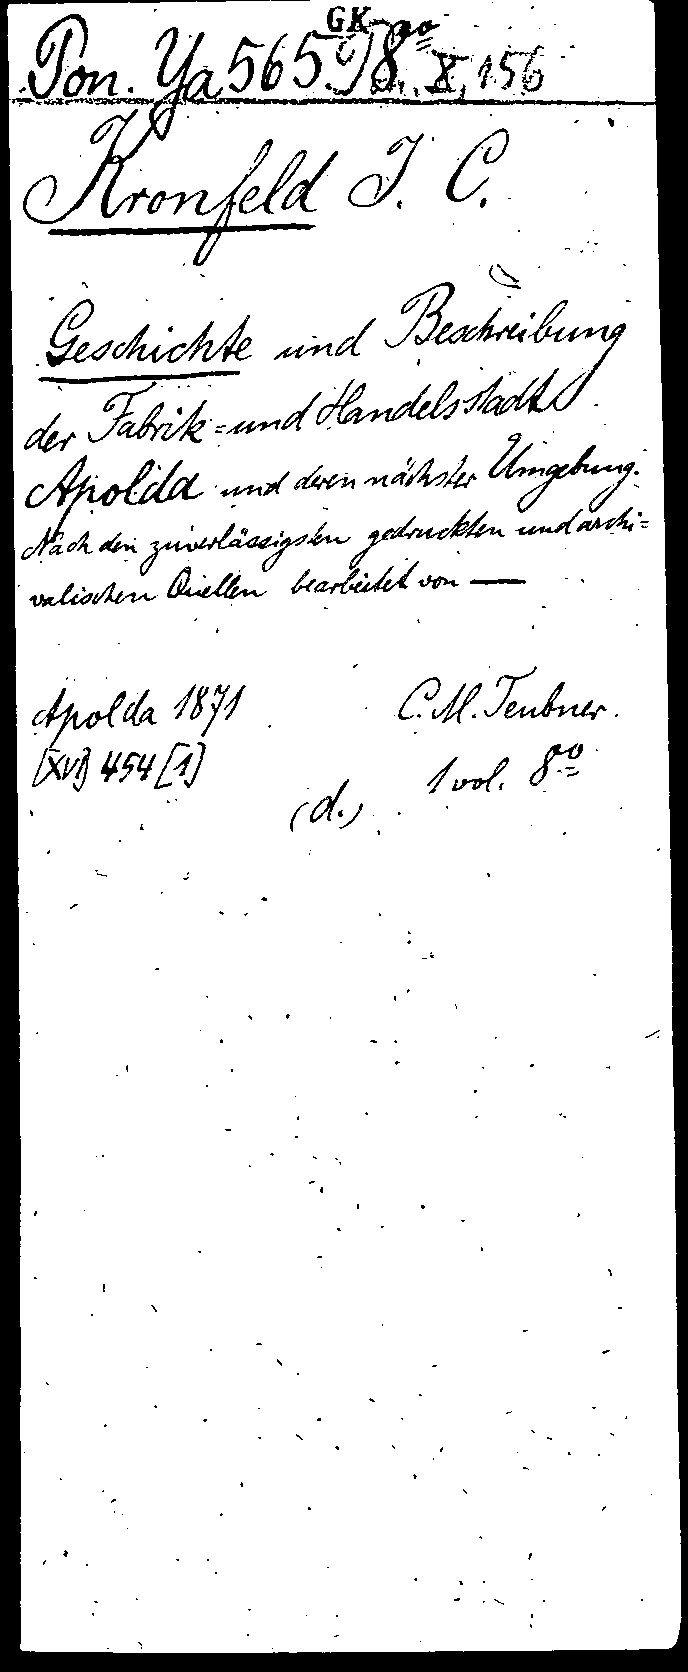 GK
Pon. Ya 565 8oo X, 156
Kronfeld J. C.
Geschichte und Beschreibung
der Fabrik=und Handelsstadt
Apolda und deren nächster Umgebung.
Nach den zuverlässigsten gedruckten und archi=
valischen Quellen bearbeitet von —
Apolda 1871 C. M. Teubner.
[XVI] 454 [1] 1 vol. 8oo
(d.)